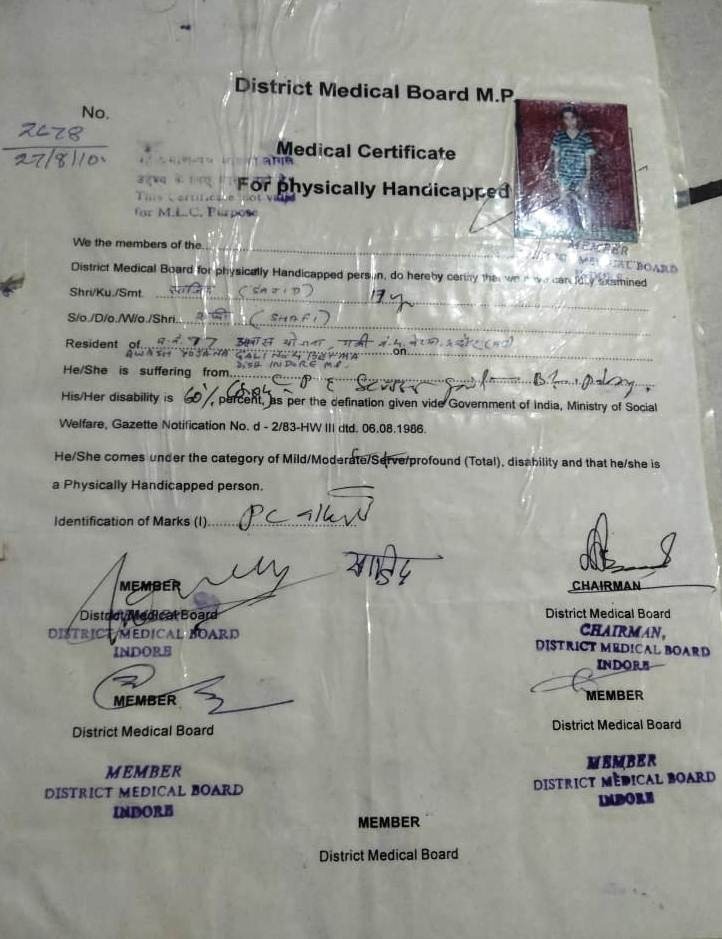 District Medical Board M.P.
No.
27/8/10
Medical Certificate
For physically Handicapped
This Certificate not valid
for M.L.C. Purpose
MEMBER
MEDICAL BOARD
We the members of the
District Medical Board for physically Handicapped person, do hereby certify that we have carefully examined
Shri/Ku./Smt. साजिद (SAJID) 17 yr
S/o./D/o./W/o./Shri. शफी (SHAFI)
Resident of 77 on
AWASH YOJANA GALI No 4 BETMA
DIST INDORE M.P.
He/She is suffering from
His/Her disability is 60% percent, as per the defination given vide Government of India, Ministry of Social
Welfare, Gazette Notification No. d - 2/83-HW III dtd. 06.08.1986.
He/She comes under the category of Mild/Moderate/Serve/profound (Total), disability and that he/she is
a Physically Handicapped person.
Identification of Marks (I)
MEMBER
District Medical Board
DISTRICT MEDICAL BOARD
INDORE
साजिद
CHAIRMAN
District Medical Board
CHAIRMAN,
DISTRICT MEDICAL BOARD
INDORE
MEMBER
District Medical Board
MEMBER
DISTRICT MEDICAL BOARD
INDORE
MEMBER
District Medical Board
MEMBER
DISTRICT MEDICAL BOARD
INDORE
MEMBER
District Medical Board